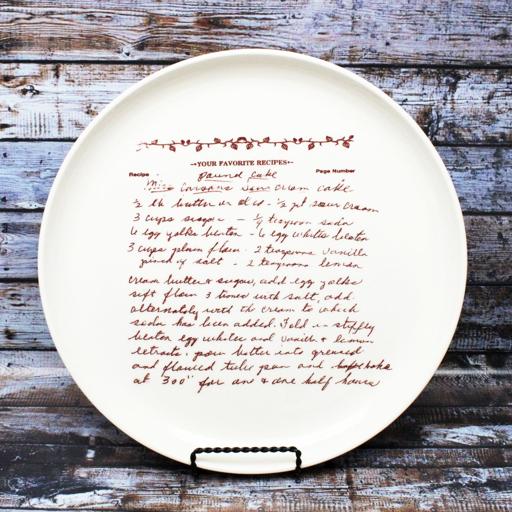 -YOUR FAVORITE RECIPES-
Recipe pound cake Page Number
Miss Carsons Sour Cream cake
½ lb butter or oleo - ½ pt sour cream
3 cups sugar - ¼ teaspoon soda
6 egg yolks beaten - 6 egg whites beaten
3 cups plain flour - 2 teaspoons vanilla
pinch of salt - 2 teaspoons lemon
cream butter & sugar, add egg yolks
sift flour 3 times with salt, add
alternately with the cream to which
soda has been added. Fold in stiffly
beaten egg whites and vanilla & lemon
extracts. pour batter into greased
and floured tube pan and bake
at 300° for one & one half hours